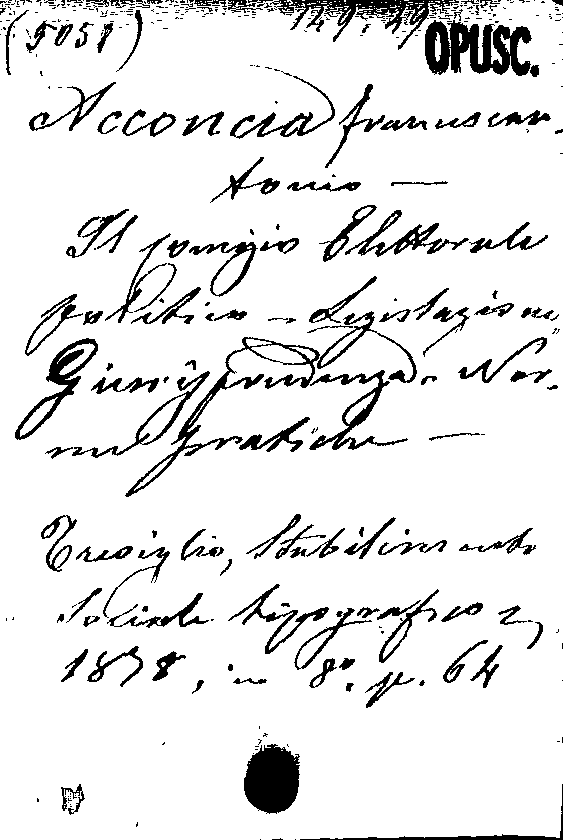 (5051) 149.29 OPUSC.
Acconcia Francescan-
tonio —
Il comizio Elettorale
politico - Legislazione
Giurisprudenza - Nor-
me pratiche —
Treviglio, Stabilimento
Sociale tipografico,
1878, in 8º. p. 64